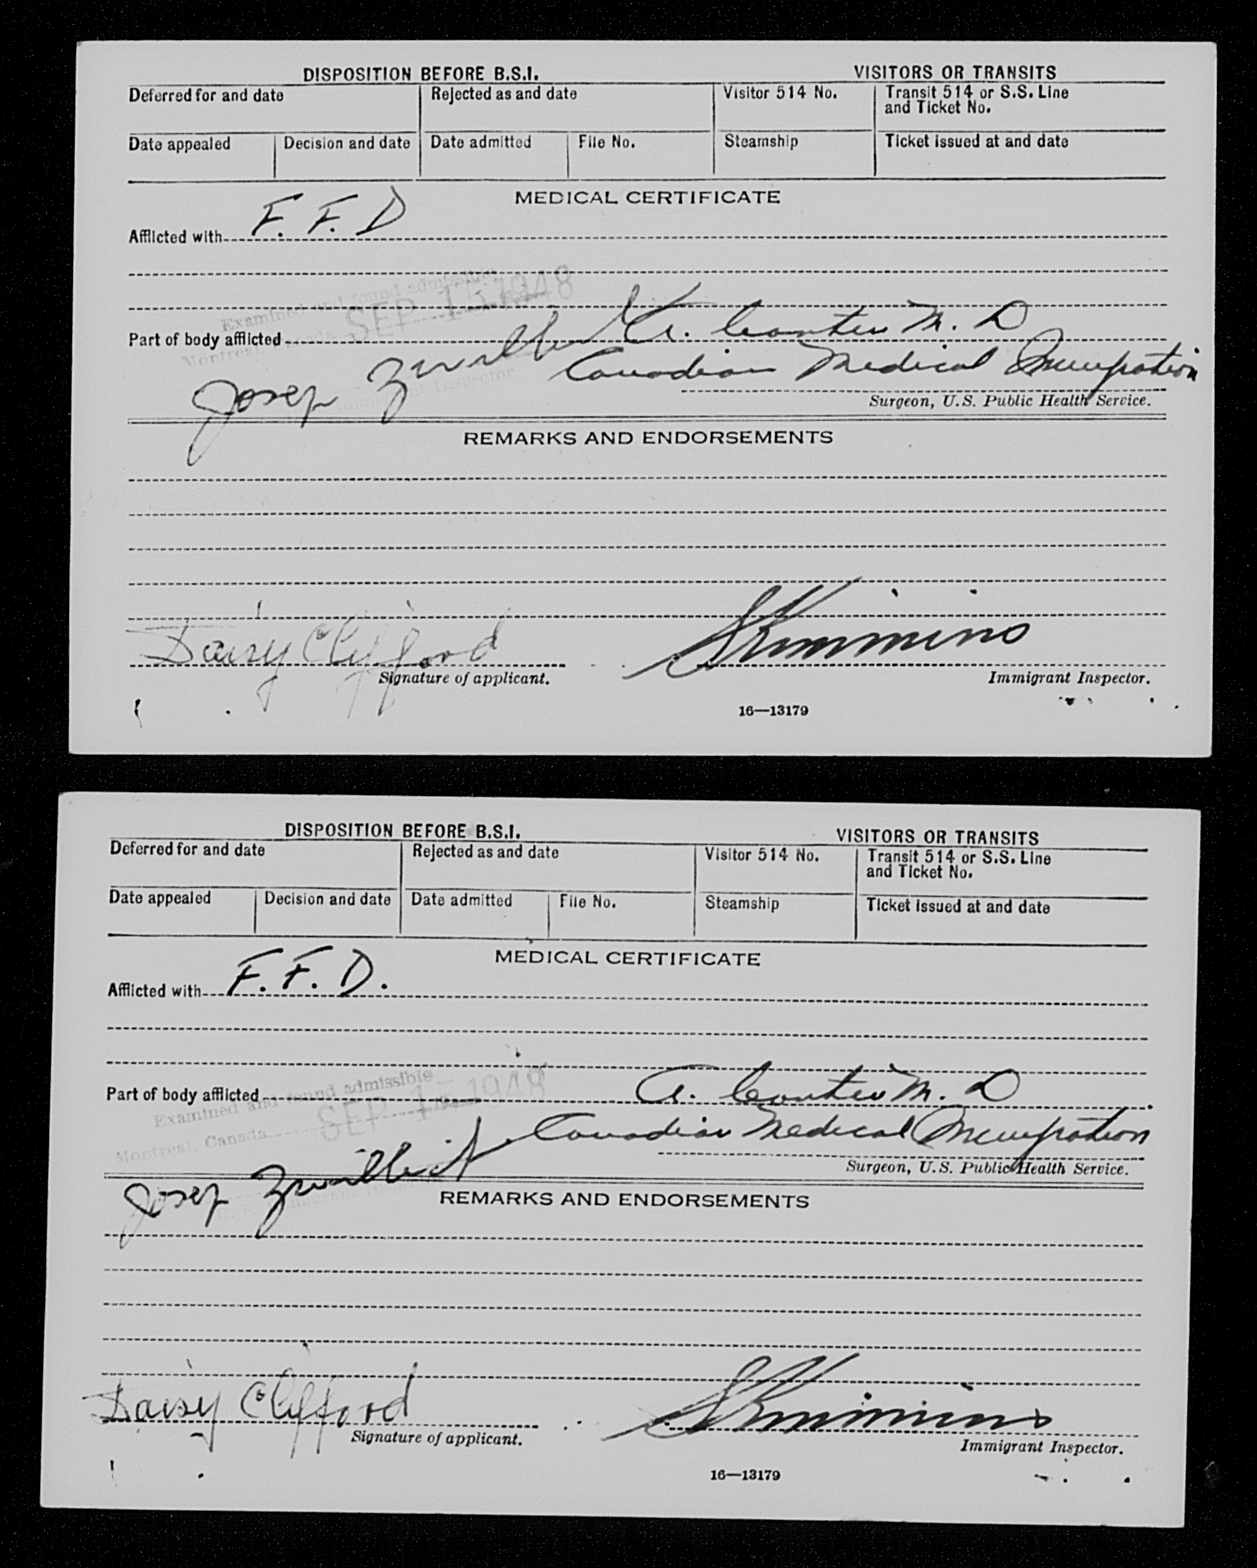 DISPOSITION BEFORE B.S.I. VISITORS OR TRANSITS
Deferred for and date Rejected as and date Visitor 514 No. Transit 514 or S.S. Line
and Ticket No.
Date appealed Decision and date Date admitted File No. Steamship Ticket issued at and date
MEDICAL CERTIFICATE
Afflicted with F. F. D
SEP 1948
Examined and found admissible
Part of body afflicted A. M. D
Montreal, Canada
Josep Canadian Medical
Surgeon, U.S. Public Health Service.
REMARKS AND ENDORSEMENTS
Daisy Clifford
Signature of applicant. Immigrant Inspector.
16—13179
DISPOSITION BEFORE B.S.I. VISITORS OR TRANSITS
Deferred for and date Rejected as and date Visitor 514 No. Transit 514 or S.S. Line
and Ticket No.
Date appealed Decision and date Date admitted File No. Steamship Ticket issued at and date
MEDICAL CERTIFICATE
Afflicted with F. F. D.
Part of body afflicted A. M. D
Examined and found admissible SEP 1948
Montreal, Canada Canadian Medical
Surgeon, U.S. Public Health Service.
Josep
REMARKS AND ENDORSEMENTS
Daisy Clifford
Signature of applicant. Immigrant Inspector.
16—13179